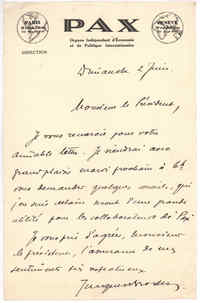 PARIS
PAX
GENÈVE
Organe Indépendant d'Économie
et de Politique Internationales
DIRECTION
Dimanche 2 juin.
Monsieur le Président,
Je vous remercie pour votre
aimable lettre. Je viendrai avec
grand plaisir mardi prochain à
vous demander quelques conseils, qui
j'en suis certain seront d'une grande
utilité pour les collaborateurs de Pax.
Je vous prie d'agréer, Monsieur
le président, l'assurance de mes
sentiments très respectueux